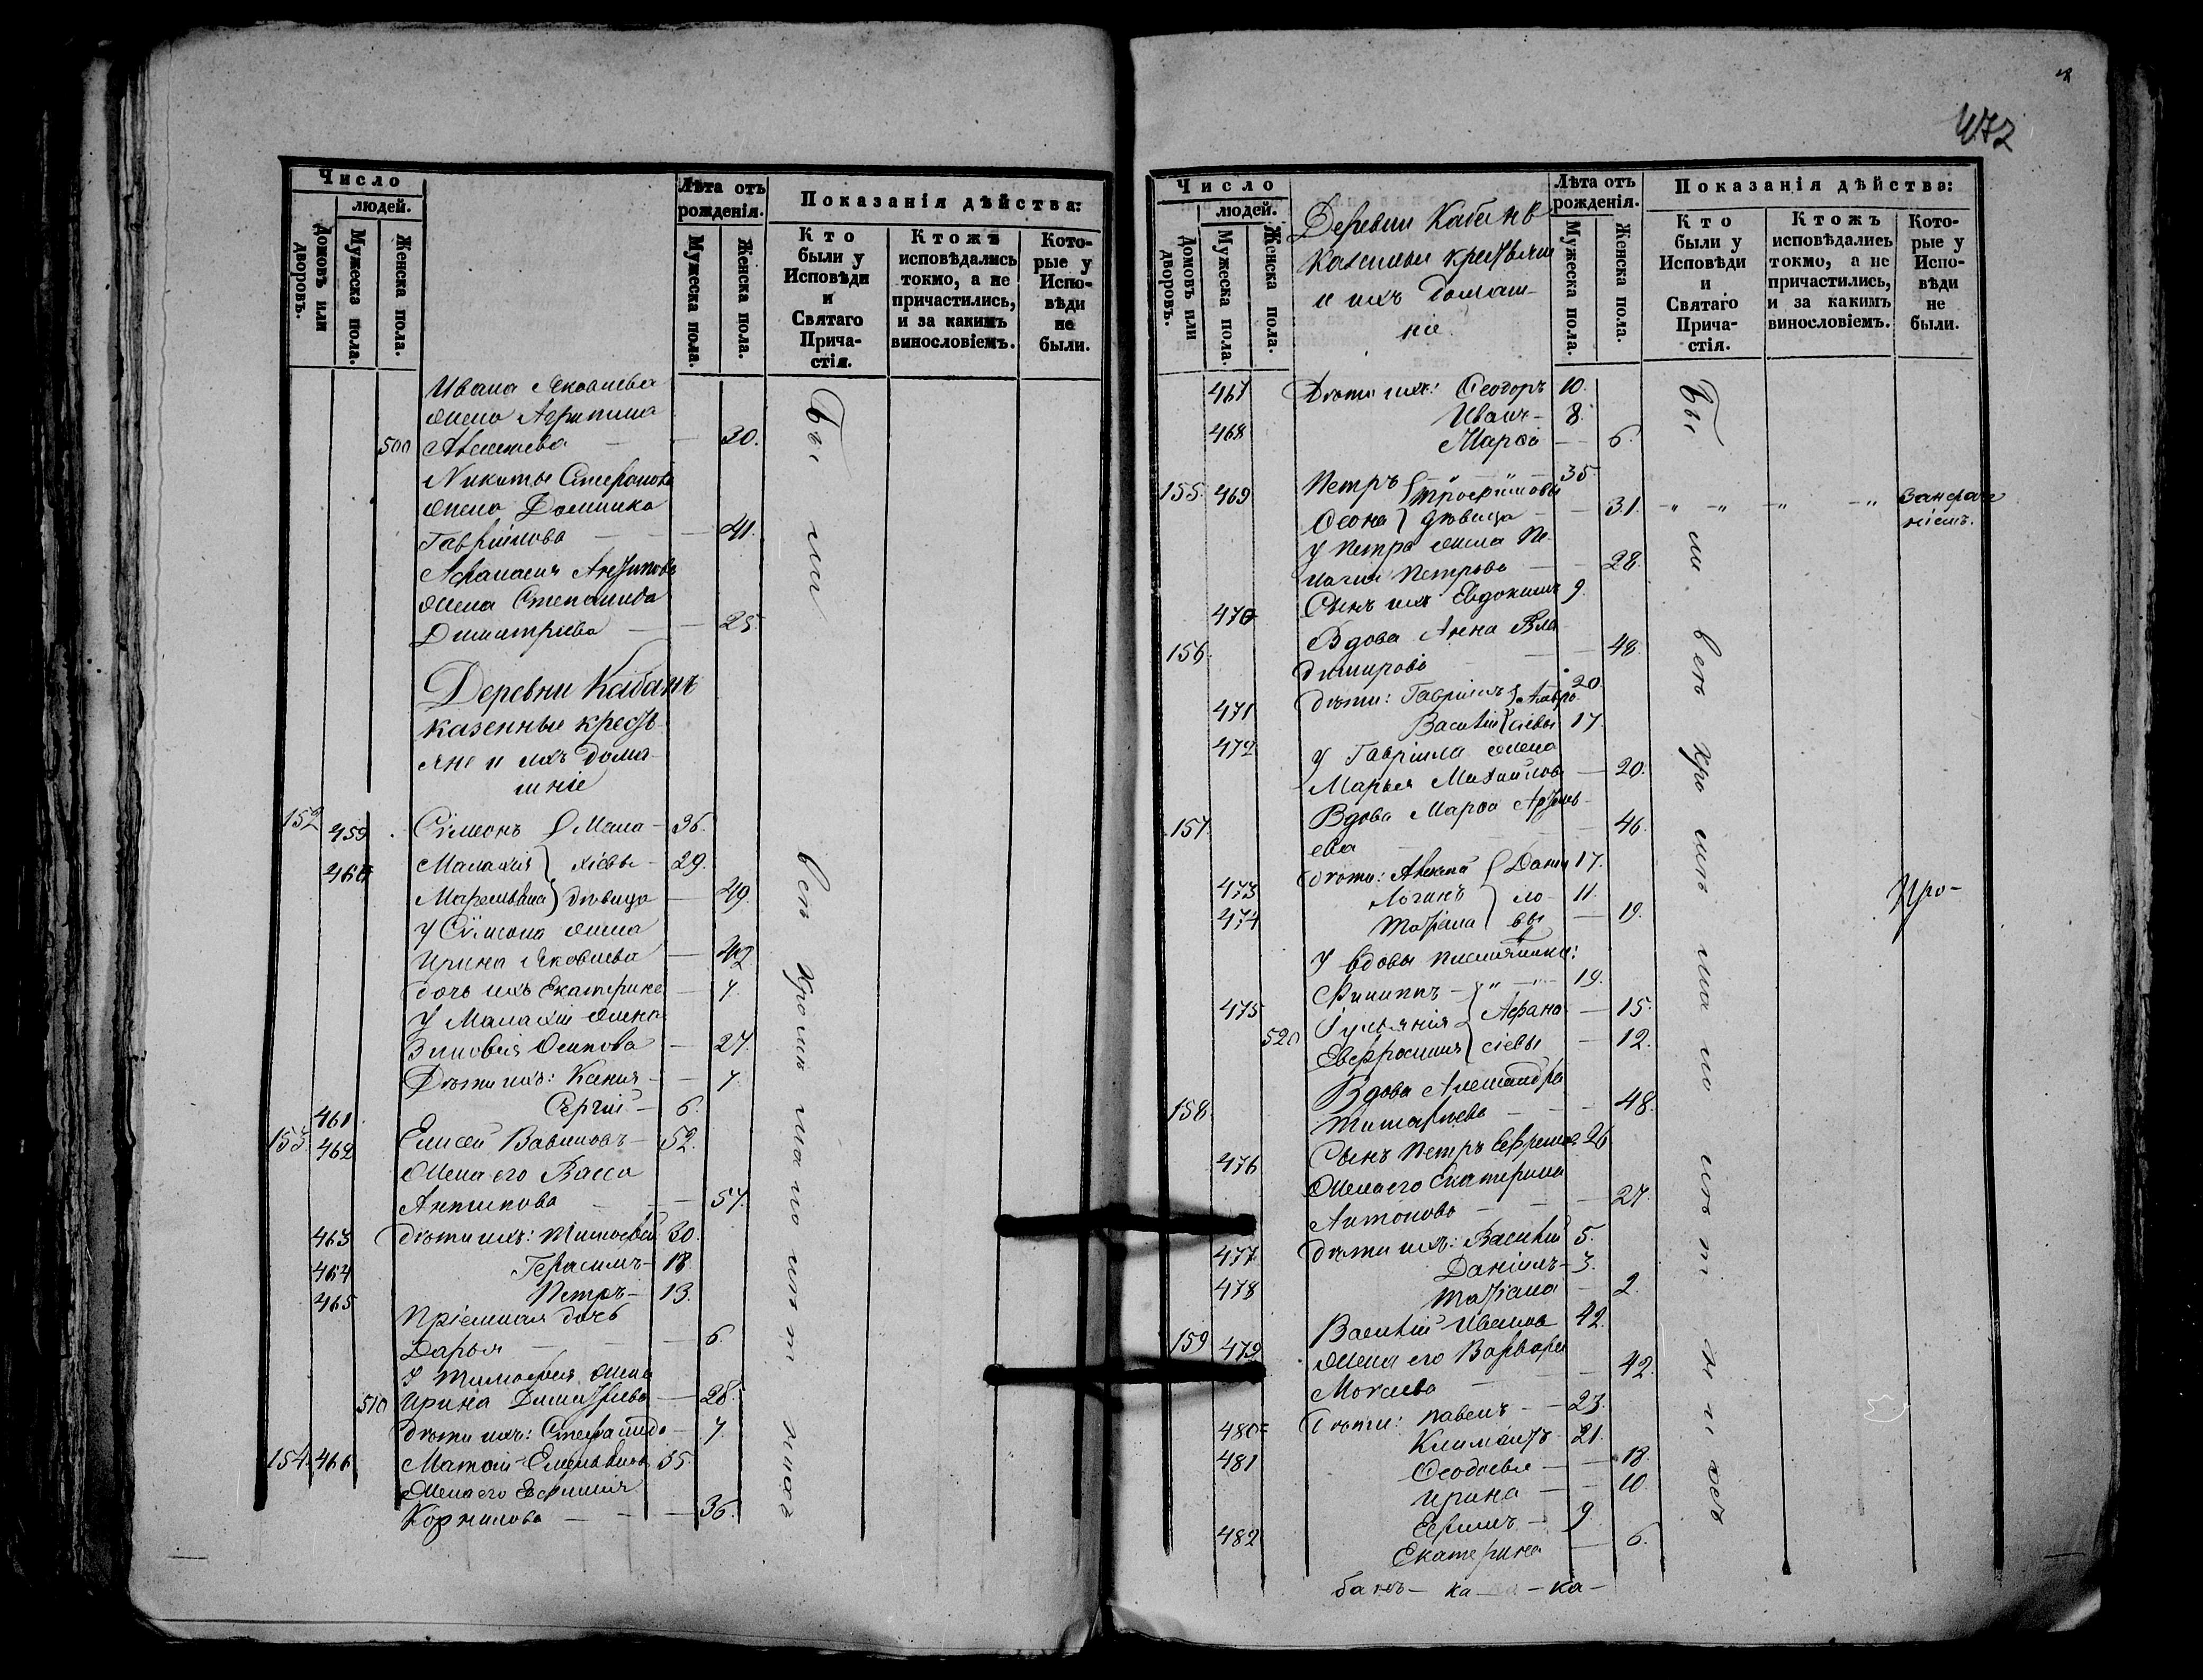 Число
людей.
Домовъ или дворовъ.
Мужеска пола.
Женска пола.
Лѣта отъ рожденія.
Мужеска пола.
Женска пола.
Показанія дѣйства:
Кто были у Исповѣди и Святаго Причастія.
Ктожъ исповѣдались токмо, а не причастились, и за какимъ винословіемъ.
Которые у Исповѣди не были.
Ивана Яковлева
жена Агрипина
500 Алексѣева — 30.
Никиты Стефанова
жена Домника
Гавріилова — 41.
Афанасія
жена Степанида
Димитріева — 25.
Деревни Кабанъ
казенные кресть
яне и ихъ дома
шніе
152 459 Сѵмеонъ Мала — 36.
460 Малахія хіевы — 29.
дѣвица — 49.
У Сѵмеона жена
Ирина Яковлева — 42
дочь ихъ Екатерина — 7.
У Малахіи жена
Зиновія Осипова — 27.
Дѣти ихъ: Ксенія — 7.
461 Сергій — 6.
153 462 Елисей Вавиловъ — 52.
Жена его Васса
Антипова — 57.
463 Дѣти ихъ: Тимоѳей 30.
464 Герасимъ — 18.
465 Петръ — 13.
Пріемная дочь
Дарья — 6.
У Тимоѳея жена
510 Ирина Димитріева — 28.
Дѣти ихъ: Степанида — 7.
154. 466. Матѳій Емельяновъ 35.
Жена его Евфимія
Корнилова — 36.
Бы ли
всѣ кромѣ мало лѣт нихъ
472
Число
людей.
Домовъ или дворовъ.
Мужеска пола.
Женска пола.
Деревни Кабанъ
казенные крестьяни
и ихъ домаш-
ніе
Лѣта отъ рожденія.
Мужеска пола.
Женска пола.
Показанія дѣйства:
Кто были у Исповѣди и Святаго Причастія.
Ктожъ исповѣдались токмо, а не причастились, и за какимъ винословіемъ.
Которые у Исповѣди не были.
467 Дѣти ихъ: Ѳеодоръ 10.
468 Иванъ — 8.
Марѳа — 6.
155. 469 Петръ — " — " — 35.
Трофимовы
дѣвица — 31. " " " "
У Петра жена Пе-
лагія Петрова — 28.
470 Сынъ ихъ Евдокимъ 9.
156. Вдова Анна Вла
димирова — 48.
471 Дѣти: Гавріилъ 20.
472 Василій 17.
У Гавріила жена
Марья Михайлова — 20.
157. Вдова Марѳа
ева — 46.
473 Дѣти: Алексѣй Дани 17.
474 Логинъ ло 11.
Татіана вы — 19.
Про-
У вдовы
475 Филиппъ — " — " — 19.
Іуліанія Афана — 15.
520 Евфросинія сіевы — 12.
158. Вдова Александра
— 48.
476 Сынъ Петръ Ефремов 26
Жена его Екатерина
Антонова — 27.
477 Дѣти ихъ: Василій 5.
478 Даніилъ — 3.
Татіана — 2.
159 479 Василій Иванов 42.
Жена его Варвара
Мокіева — 42.
480 Дѣти: Павелъ — 23.
481 Климентъ — 21.
Ѳеодосья — 18.
Ирина — 10.
482 Ефимъ — 9
Екатерина — 6.
Бы ли всѣ кро мѣ ма ло лѣ т н и хъ
банъ — ка — ка —